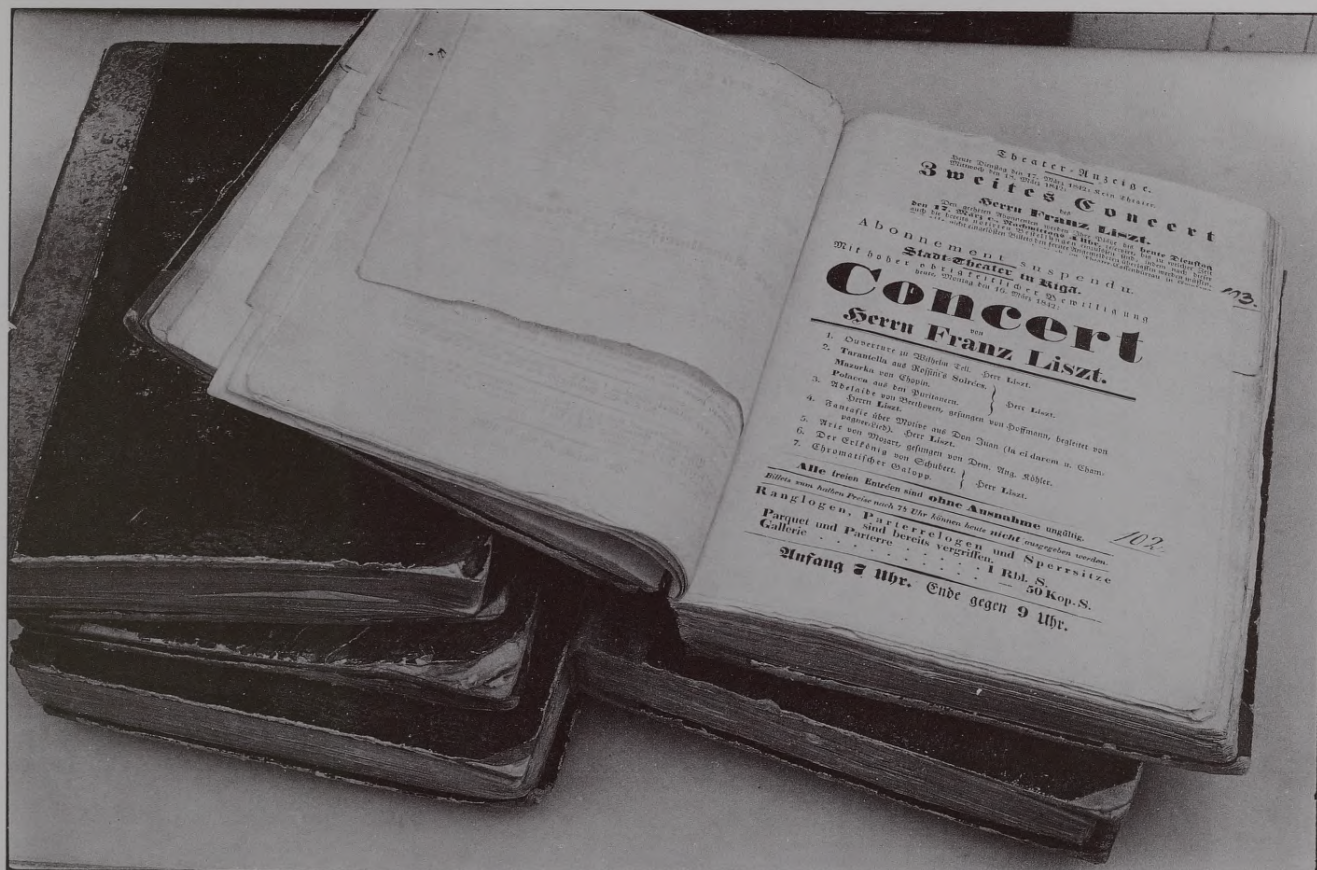 Theater-Anzeige.
Heute Dienstag den 17. März 1842: Kein Theater.
Mittwoch den 18. März 1842:
Zweites Concert
des
Herrn Franz Liszt.
Den geehrten Abonnenten werden ihre Plätze bis heute Dienstag
den 17. März c. Nachmittags 4 Uhr,
113.
Abonnement suspendu.
Stadt-Theater in Riga.
Mit hoher obrigkeitlicher Bewilligung
heute, Montag den 16. März 1842:
Concert
von
Herrn Franz Liszt.
1. Ouverture zu Wilhelm Tell. Herr Liszt.
2. Tarantella aus Rossini's Soiréen.
Mazurka von Chopin.
Polacca aus den Puritanern. } Herr Liszt.
3. Adelaide von Beethoven, gesungen von Hoffmann, begleitet von
Herrn Liszt.
4. Fantasie über Motive aus Don Juan (la ci darem u. Cham-
pagner-Lied). Herr Liszt.
5. Arie von Mozart, gesungen von Dem. Aug. Köhler.
6. Der Erlkönig von Schubert.
7. Chromatischer Galopp. } Herr Liszt.
Alle freien Entréen sind ohne Ausnahme ungültig.
Billets zum halben Preise nach 7½ Uhr können heute nicht ausgegeben werden.
102.
Ranglogen, Parterrelogen und Sperrsitze
sind bereits vergriffen.
Parquet und Parterre . . . . . 1 Rbl. S.
Gallerie . . . . . . . . — 50 Kop. S.
Anfang 7 Uhr. Ende gegen 9 Uhr.